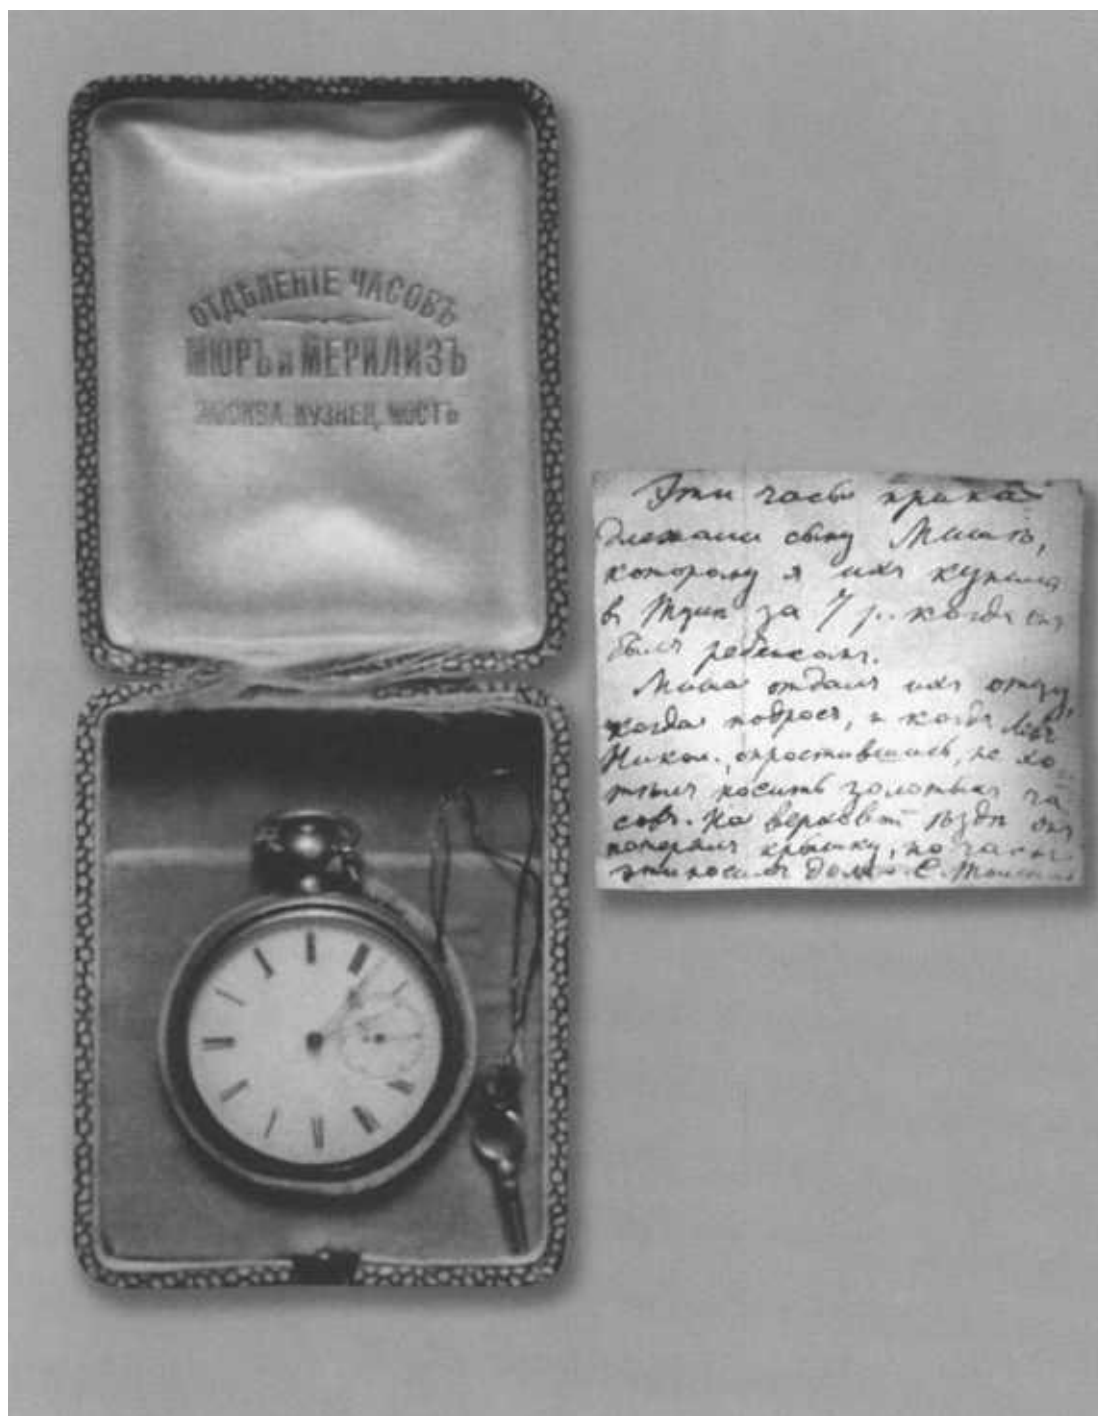 ОТДѢЛЕНІЕ ЧАСОВЪ
МЮРЪ и МЕРИЛИЗЪ
МОСКВА. КУЗНЕЦ. МОСТЪ
Эти часы прина
длежали сыну Мишѣ,
которому я ихъ купила
въ за 7 р. когда онъ
былъ ребенкомъ.
Миша отдалъ ихъ отцу,
когда подросъ, и когда Левъ
Никол., опростившись, не хо
тѣлъ носить золотыхъ ча
совъ. На верховой ѣздѣ онъ
потерялъ крышку, но часы
эти носилъ долго. С. Толстая